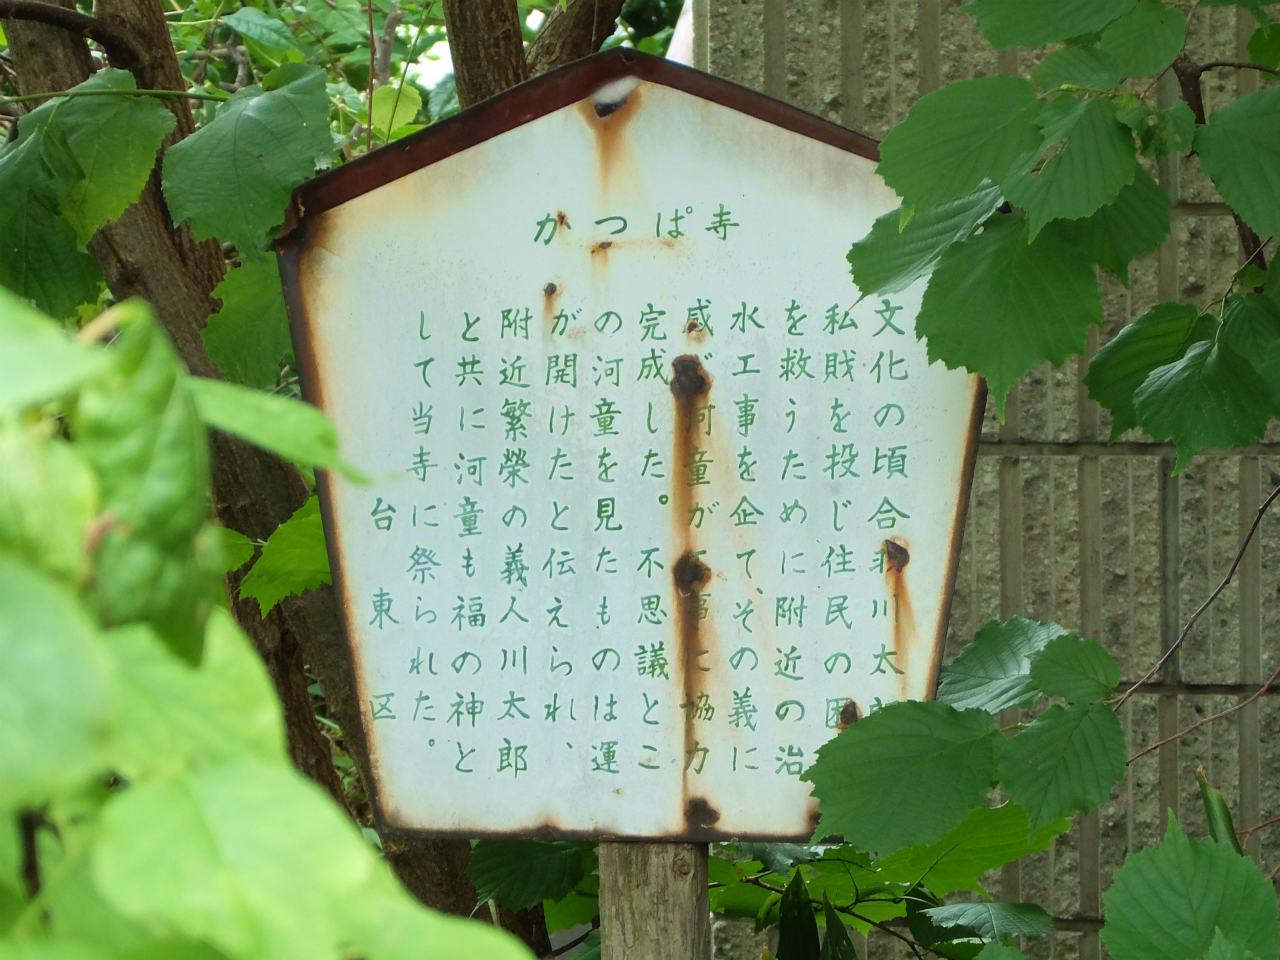 かつぱ寺
文化の頃合羽川太郎
私財を投じ住民の困
を救うために附近の治
水工事を企て、その義に
感じ河童が工事に協力
完成した。不思議とこ
の河童を見たものは運
が開けたと伝えられ、
附近繁榮の義人川太郎
と共に河童も福の神と
して当寺に祭られた。
台東区